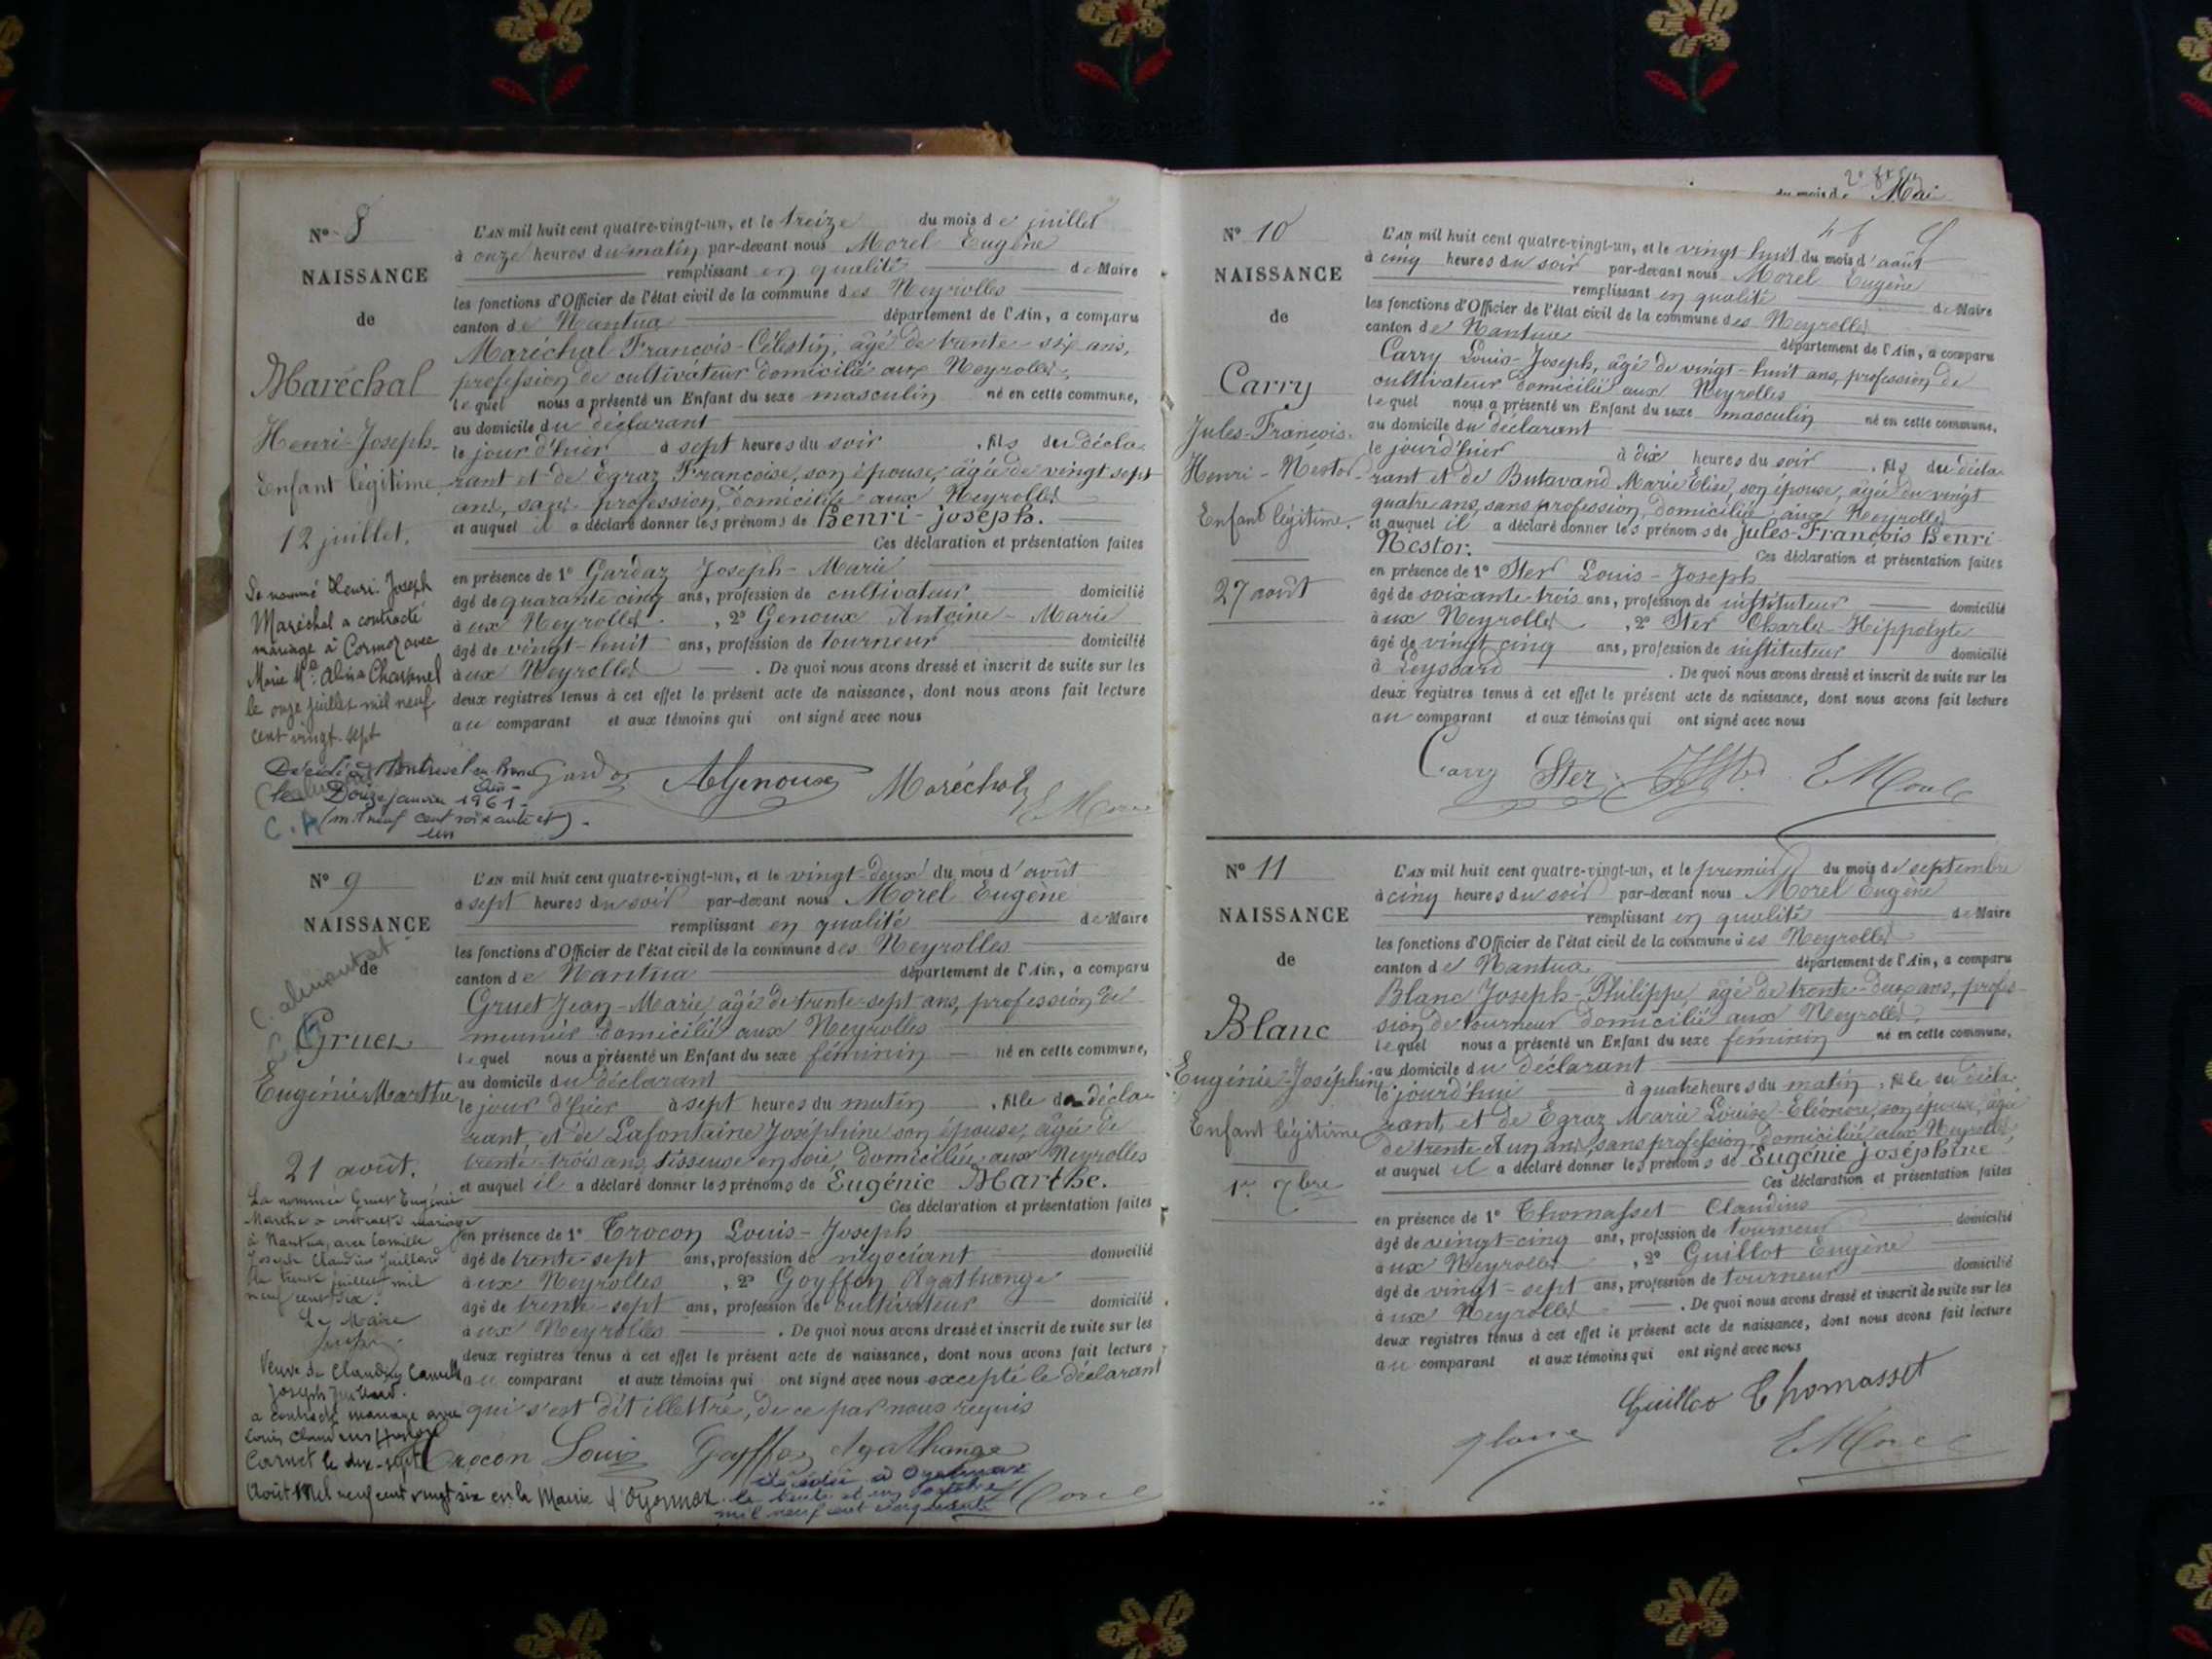 N° 8
NAISSANCE
de
Maréchal
Henri-Joseph
Enfant légitime
12 juillet.
Le nommé Henri Joseph
Maréchal a contracté
mariage à Cormoz avec
Marie
le onze juillet mil neuf
cent vingt-sept
Douze janvier 1961
(mil neuf cent soixante et
un
L'AN mil huit cent quatre-vingt-un, et le treize du mois de juillet
à onze heures du matin par-devant nous Morel Eugène
remplissant en qualité de Maire
les fonctions d'Officier de l'état civil de la commune des Neyrolles
canton de Nantua département de l'Ain, a comparu
Maréchal François-Célestin, âgé de trente-six ans,
profession de cultivateur domicilié aux Neyrolles,
lequel nous a présenté un Enfant du sexe masculin né en cette commune,
au domicile du déclarant
le jour d'hier à sept heures du soir, fils du décla-
rant et de Egraz Françoise, son épouse, âgée de vingt sept
ans, sans profession, domiciliée aux Neyrolles
et auquel il a déclaré donner les prénoms de Henri-Joseph.
Ces déclaration et présentation faites
en présence de 1° Gardaz Joseph-Marie
âgé de quarante cinq ans, profession de cultivateur domicilié
aux Neyrolles, 2° Genoux Antoine-Marie
âgé de vingt-huit ans, profession de tourneur domicilié
aux Neyrolles. De quoi nous avons dressé et inscrit de suite sur les
deux registres tenus à cet effet le présent acte de naissance, dont nous avons fait lecture
au comparant et aux témoins qui ont signé avec nous
Gardaz AGenoux Maréchal E Morel
N° 9
NAISSANCE
de
Gruet
Eugénie Marthe
21 août.
La nommée Gruet Eugénie
Marthe a contracté mariage
à Nantua, avec Camille
Joseph Claudius Juillard
le trente juillet mil
neuf cent six.
Le Maire
Veuve de Claudius Camille
Joseph Juillard.
a contracté mariage avec
Carnet le dix-sept
Août Mil neuf cent vingt six en la Mairie d'Oyonnax
L'AN mil huit cent quatre-vingt-un, et le vingt-deux du mois d'août
à sept heures du soir par-devant nous Morel Eugène
remplissant en qualité de Maire
les fonctions d'Officier de l'état civil de la commune des Neyrolles
canton de Nantua département de l'Ain, a comparu
Gruet Jean-Marie, âgé de trente-sept ans, profession de
meunier domicilié aux Neyrolles
lequel nous a présenté un Enfant du sexe féminin né en cette commune,
au domicile du déclarant
le jour d'hier à sept heures du matin, fille du décla-
rant, et de Lafontaine Joséphine son épouse, âgée de
trente-trois ans, tisseuse en soie, domiciliée aux Neyrolles
et auquel il a déclaré donner les prénoms de Eugénie Marthe.
Ces déclaration et présentation faites
en présence de 1° Crocon Louis-Joseph
âgé de trente-sept ans, profession de négociant domicilié
aux Neyrolles, 2° Goyffon Agathange
âgé de trente-sept ans, profession de cultivateur domicilié
aux Neyrolles. De quoi nous avons dressé et inscrit de suite sur les
deux registres tenus à cet effet le présent acte de naissance, dont nous avons fait lecture
au comparant et aux témoins qui ont signé avec nous excepté le déclarant
qui s'est dit illettré, de ce par nous requis
Crocon Louis Goyffon Agathange
décédée à Oyonnax
le trente et un octobre
mil neuf cent cinquante
N° 10
NAISSANCE
de
Carry
Jules-François-
Henri-Nestor
Enfant légitime.
27 août
L'AN mil huit cent quatre-vingt-un, et le vingt-huit du mois d'août
à cinq heures du soir par-devant nous Morel Eugène
remplissant en qualité de Maire
les fonctions d'Officier de l'état civil de la commune des Neyrolles
canton de Nantua département de l'Ain, a comparu
Carry Louis-Joseph, âgé de vingt-huit ans, profession de
cultivateur domicilié aux Neyrolles
lequel nous a présenté un Enfant du sexe masculin né en cette commune,
au domicile du déclarant
le jour d'hier à dix heures du soir, fils du décla-
rant et de Butavand Marie Elise, son épouse, âgée du vingt
quatre ans, sans profession, domiciliée aux Neyrolles
et auquel il a déclaré donner les prénoms de Jules-François Henri-
Nestor.
Ces déclaration et présentation faites
en présence de 1° Ster Louis-Joseph
âgé de soixante-trois ans, profession de instituteur domicilié
aux Neyrolles, 2° Ster Charles-Hippolyte
âgé de vingt cinq ans, profession de instituteur domicilié
à Leyssard. De quoi nous avons dressé et inscrit de suite sur les
deux registres tenus à cet effet le présent acte de naissance, dont nous avons fait lecture
au comparant et aux témoins qui ont signé avec nous
Carry Ster E Morel
N° 11
NAISSANCE
de
Blanc
Eugénie-Joséphine
Enfant légitime
1er 7bre
L'AN mil huit cent quatre-vingt-un, et le premier du mois de septembre
à cinq heures du soir par-devant nous Morel Eugène
remplissant en qualité de Maire
les fonctions d'Officier de l'état civil de la commune des Neyrolles
canton de Nantua département de l'Ain, a comparu
Blanc Joseph-Philippe, âgé de trente-deux ans, profes-
sion de tourneur domicilié aux Neyrolles,
lequel nous a présenté un Enfant du sexe féminin né en cette commune,
au domicile du déclarant
le jourd'hui à quatre heures du matin, fille du décla-
rant, et de Egraz Marie Louise-Eléonore, son épouse, âgée
de trente et un ans, sans profession, domiciliée aux Neyrolles,
et auquel il a déclaré donner les prénoms de Eugénie Joséphine
Ces déclaration et présentation faites
en présence de 1° Thomasset Claudius
âgé de vingt-cinq ans, profession de tourneur domicilié
aux Neyrolles, 2° Guillot Eugène
âgé de vingt-sept ans, profession de tourneur domicilié
aux Neyrolles. De quoi nous avons dressé et inscrit de suite sur les
deux registres tenus à cet effet le présent acte de naissance, dont nous avons fait lecture
au comparant et aux témoins qui ont signé avec nous
Guillot Thomasset
Blanc E Morel
du mois de Mai